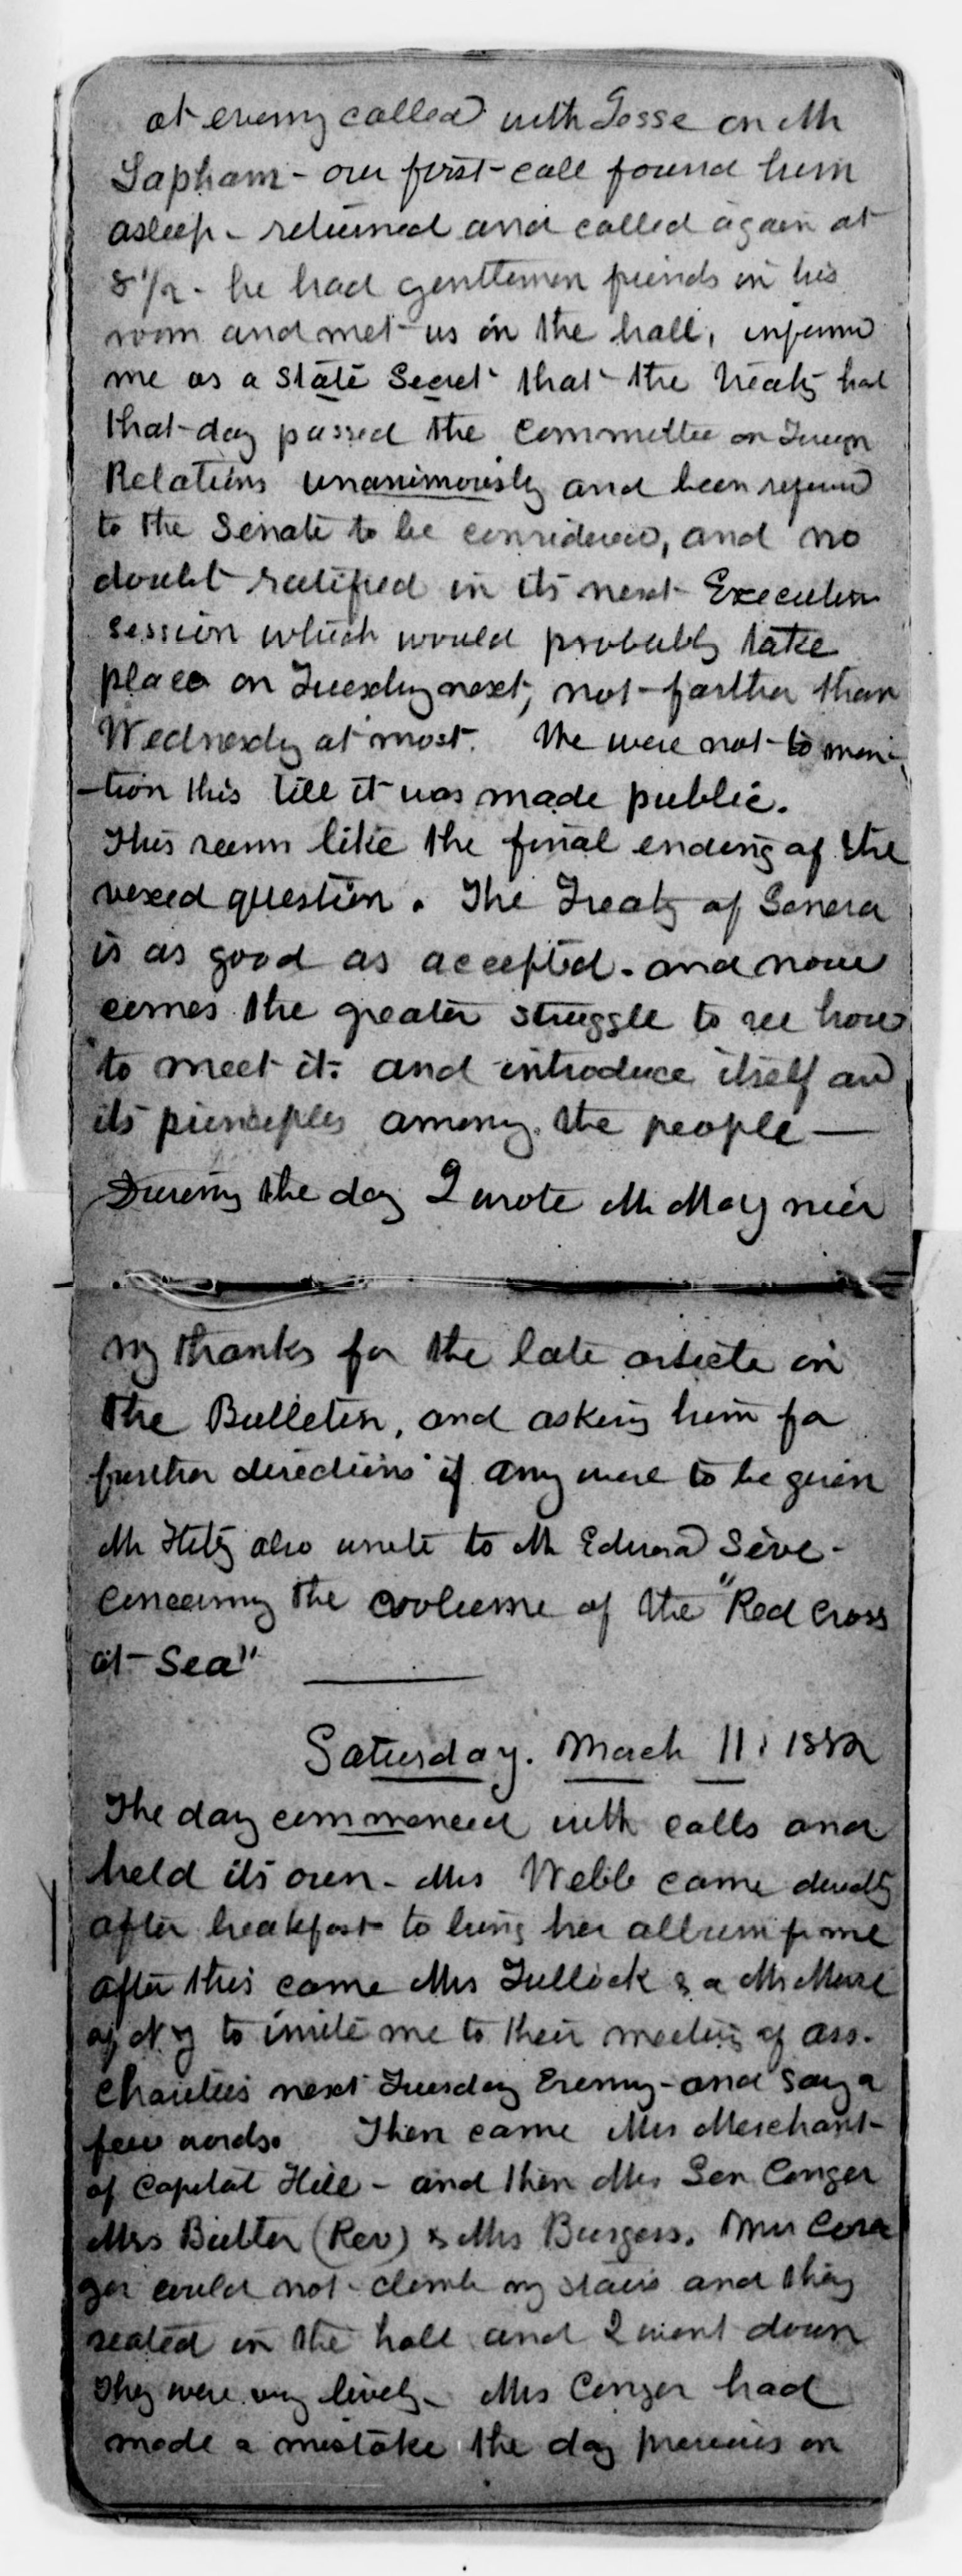 at evening called with Jesse on Mr
Lapham - our first call found him
asleep - returned and called again at
8 1/2 - he had gentlemen friends in his
room and met us in the hall, informed
me as a State Secret that the treaty had
that day passed the Committee on Foreign
Relations unanimously and been referred
to the Senate to be considered, and no
doubt ratified in its next Executive
session which would probably take
place on Tuesday next, not farther than
Wednesday at most. We were not to men-
-tion this till it was made public.
This seems like the final ending of the
vexed question. The Treaty of Geneva
is as good as accepted - and now
comes the greater struggle to see how
to meet it - and introduce itself and
its principles among the people —
During the day I wrote Mr Moynier
my thanks for the late article in
the Bulletin, and asking him for
further directions if any were to be given
Mr Hitz also wrote to Mr Edward Seve -
concerning the volume of the "Red Cross
at - Sea"
Saturday. March 11. 1882
The day commenced with calls and
held its own - Mrs Webb came directly
after breakfast to bring her album for me
after this came Mrs Tullock & a Mr
of N.Y to invite me to their meeting of ass.
Charities next Tuesday Evening - and say a
few words. Then came Mrs Merchant -
of Capital Hill - and then Mrs Sen Conger
Mrs Butler (Rev) & Mrs Burgess. Mrs Con
ger could not climb my stairs and they
seated in the hall and I went down
They were very lively - Mrs Conger had
made a mistake the day previous on